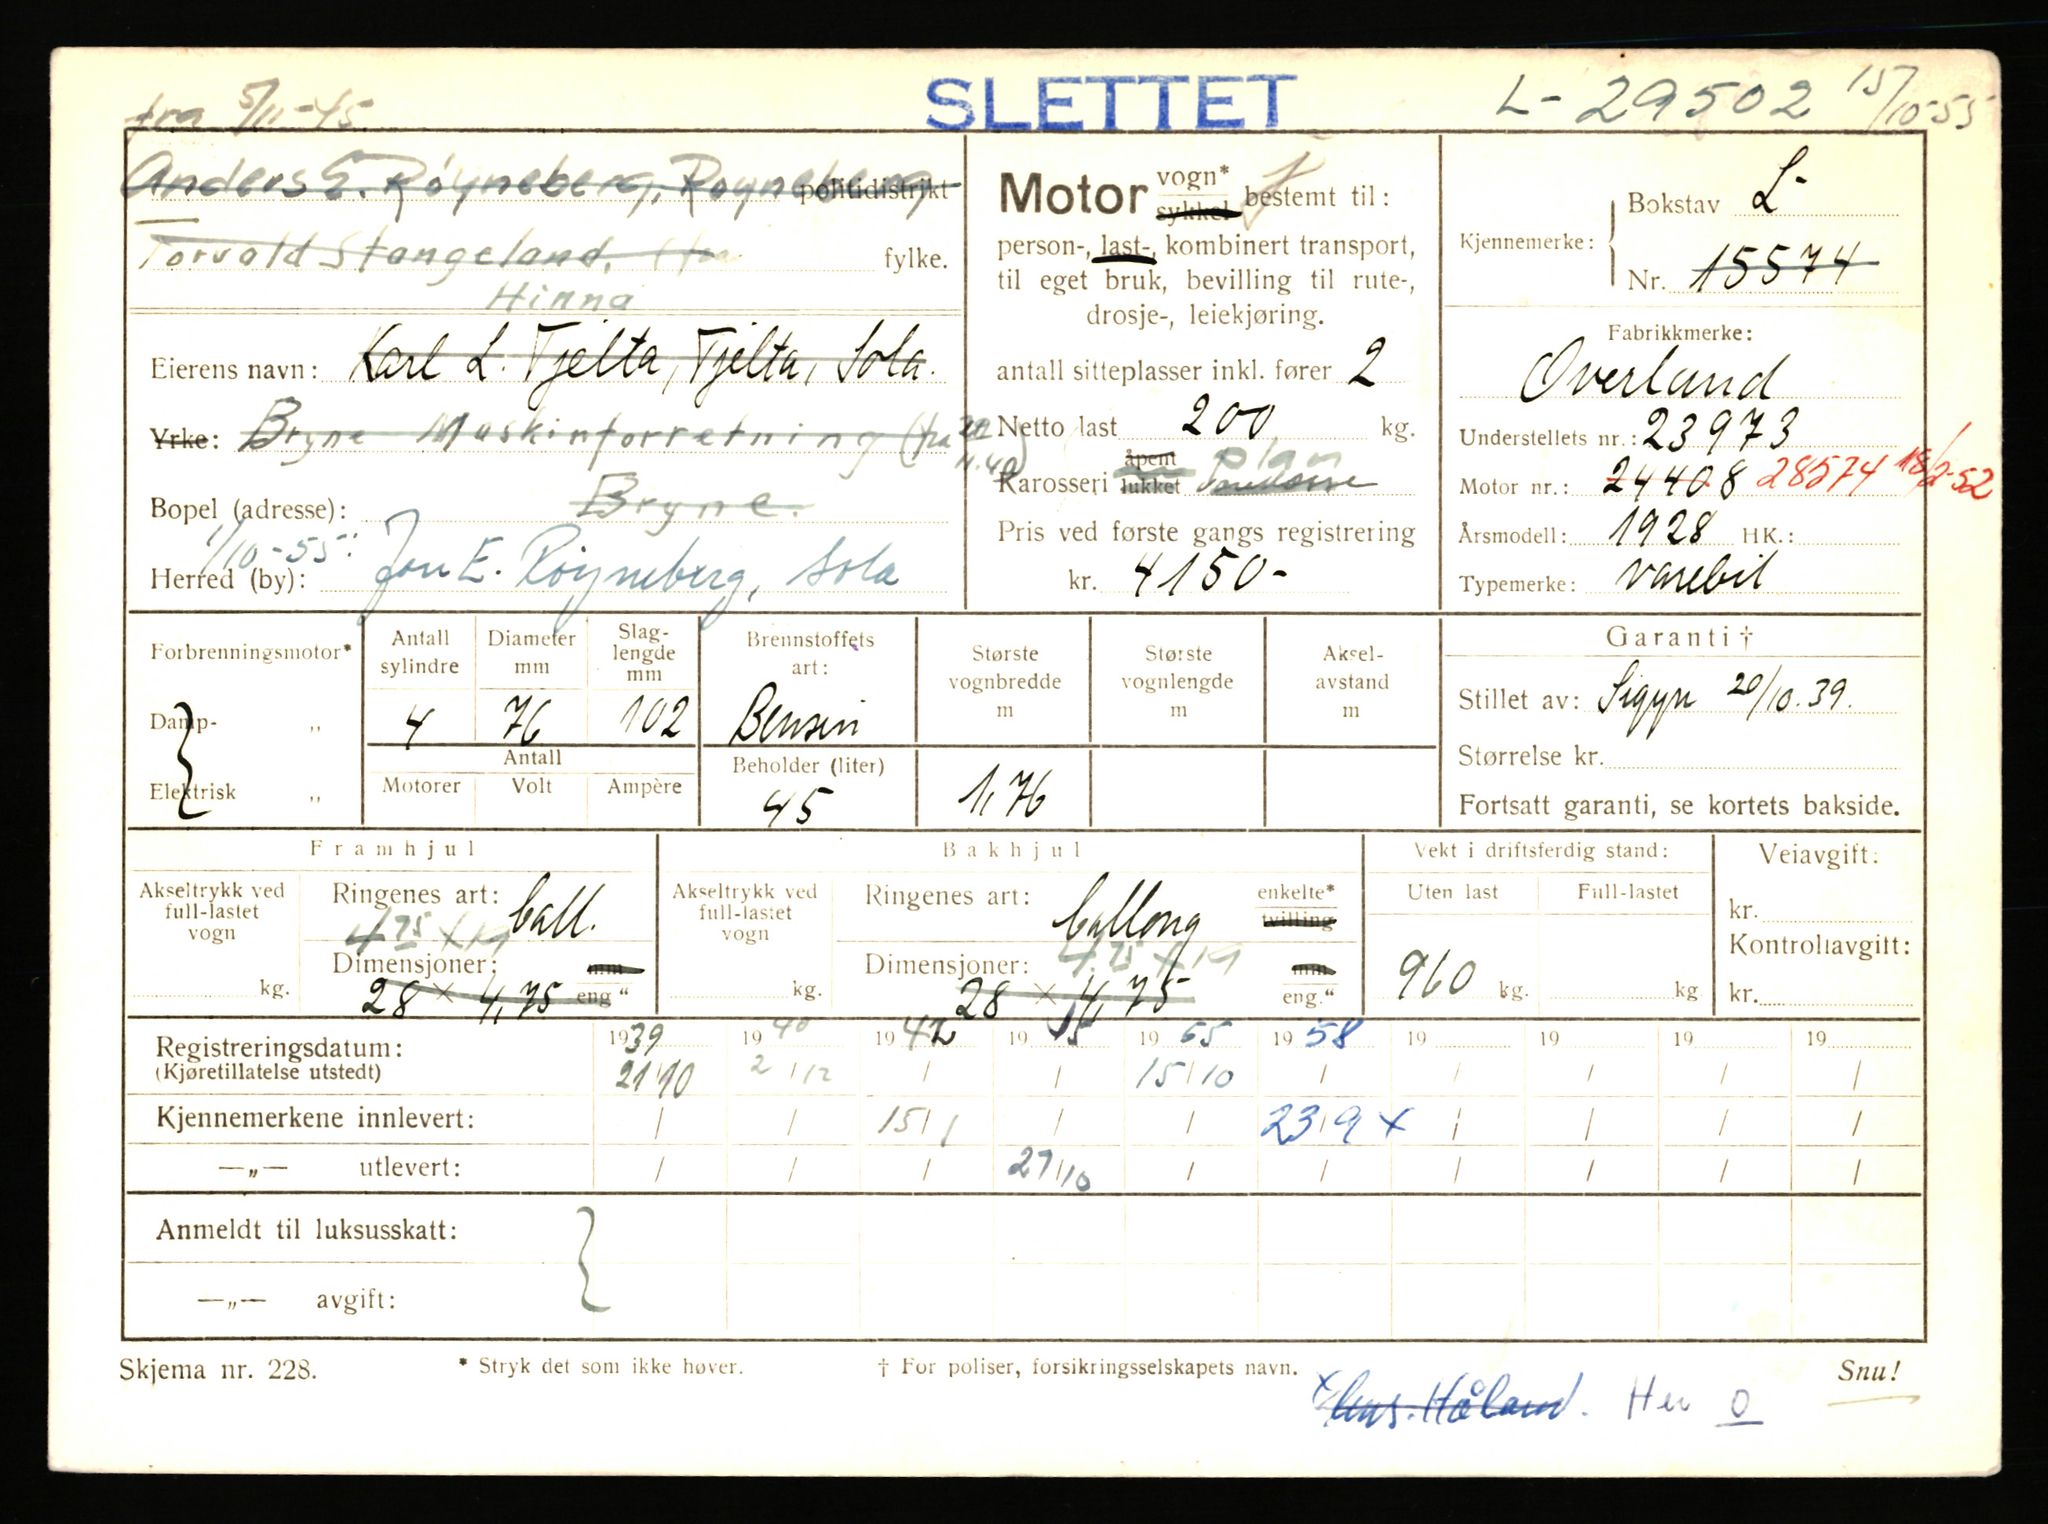 SLETTET
L- 29502 15/10-55
fra 5/11-45
Anders E. Røyneberg, Røyneberg politidistrikt
Torvald Stangeland, fylke.
Hinna
Eierens navn: Karl L. Tjelta, Tjelta, Sola.
Yrke: Bryne Maskinforretning (fra
Bopel (adresse): Bryne.
1/10-55:
Herred (by): Jon E. Røyneberg, Sola
Motor vogn* sykkel bestemt til:
person-, last-, kombinert transport,
til eget bruk, bevilling til rute-,
drosje-, leiekjøring.
antall sitteplasser inkl. fører 2
Netto last 200 kg.
Karosseri åpent lukket plan
Pris ved første gangs registrering
kr. 4150-
Kjennemerke: Bokstav L-
Nr. 15574
Fabrikkmerke:
Overland
Understellets nr.: 23973
Motor nr.: 24408 28574 18/2-52
Årsmodell: 1928 HK.:
Typemerke: varebil
Forbrenningsmotor*
Damp- „
Elektrisk „
Antall sylindre
Diameter mm
Slaglengde mm
4 76 102
Antall
Motorer Volt Ampère
Brennstoffets art:
Bensin
Beholder (liter)
45
Største vognbredde m
1,76
Største vognlengde m
Akselavstand m
Garanti †
Stillet av: Sigyn 20/10.39.
Størrelse kr.
Fortsatt garanti, se kortets bakside.
Framhjul
Akseltrykk ved full-lastet vogn
kg.
Ringenes art: ball.
4.75 x 19
Dimensjoner: mm
28 x 4,75 eng "
Bakhjul
Akseltrykk ved full-lastet vogn
kg.
Ringenes art: ballong enkelte* tvilling
4.75 x 19
Dimensjoner: mm
28 x 4,75 eng."
Vekt i driftsferdig stand:
Uten last Full-lastet
960 kg. kg
Veiavgift:
kr.
Kontrollavgift:
kr.
Registreringsdatum: 1939 1940 1942 19 45 19 55 1958 19 19 19 19
(Kjøretillatelse utstedt) 21/10 2/12 / / 15/10 / / / / /
Kjennemerkene innlevert: / / 15/1 / / 23/9 x / / / /
—„— utlevert: / / / 27/10 / / / / / /
Anmeldt til luksusskatt:
—„— avgift:
Skjema nr. 228. * Stryk det som ikke høver. † For poliser, forsikringsselskapets navn. Snu!
x Håland.